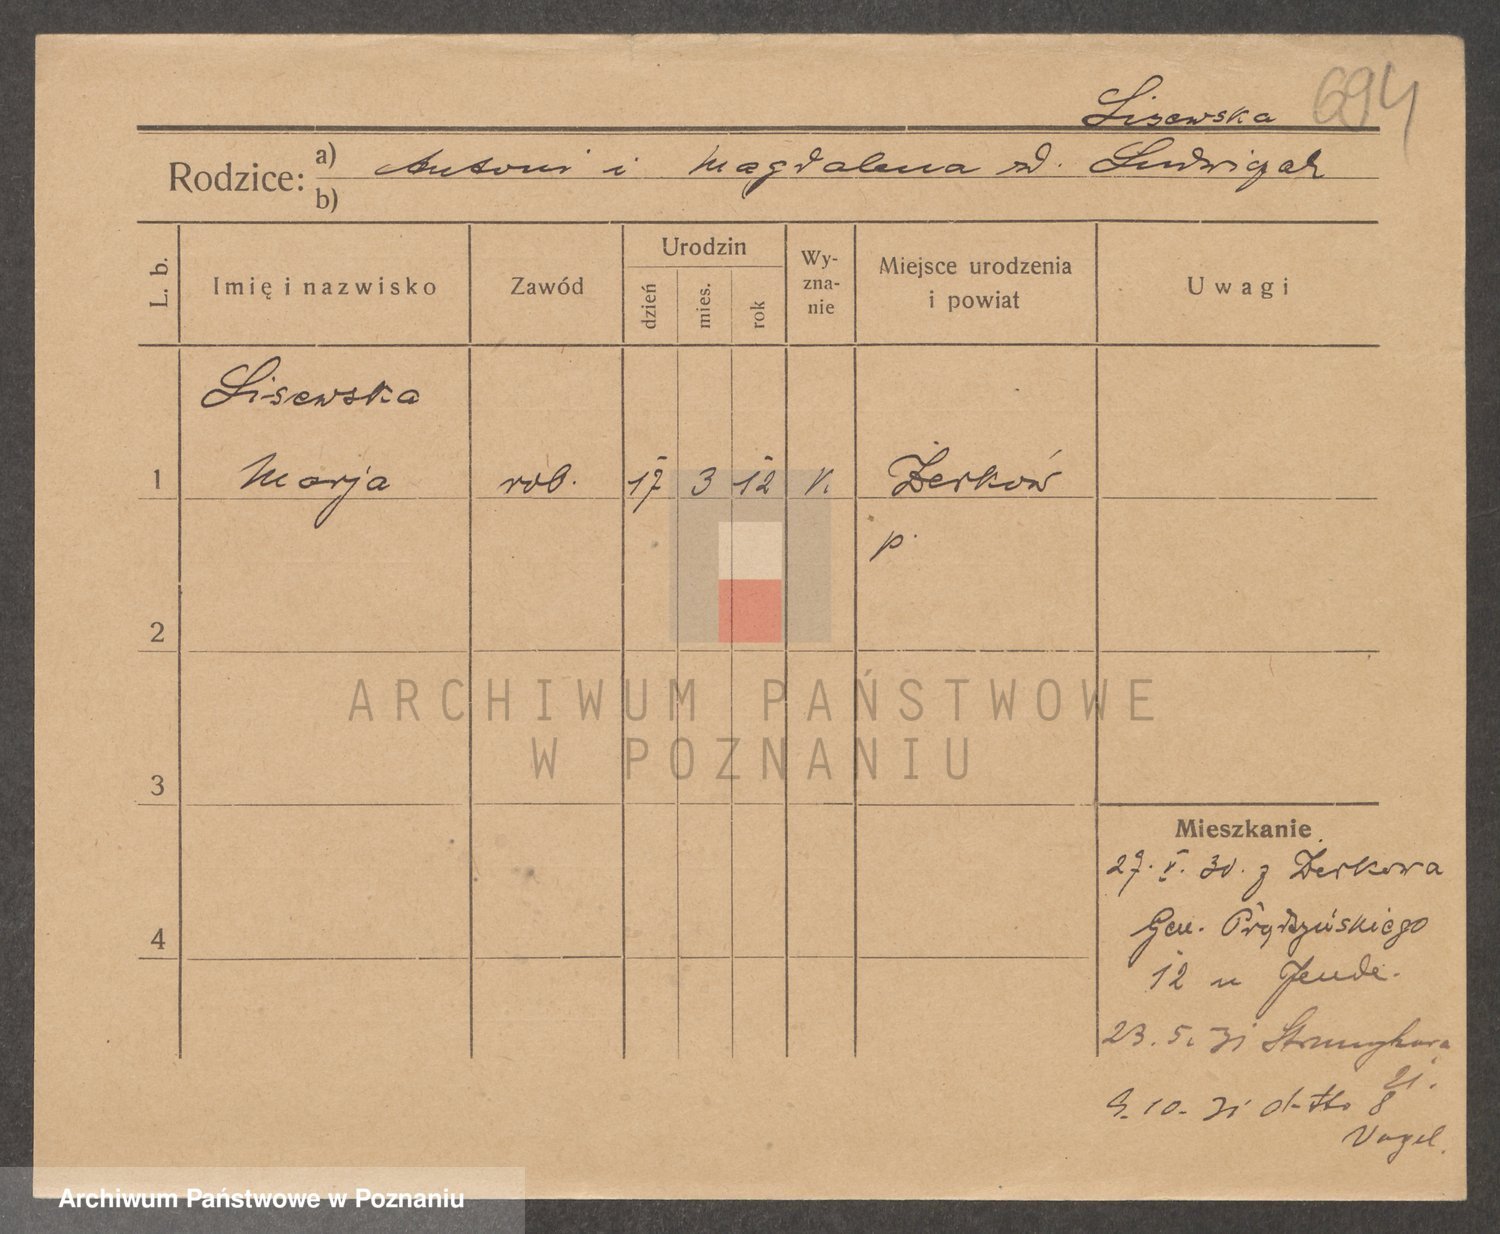 Lisewska 694
Rodzice: a) Antoni i Magdalena zd. Ludwiczak
b)
L. b. Imię i nazwisko Zawód Urodzin dzień mies. rok Wy-zna-nie Miejsce urodzenia i powiat Uwagi
Lisewska
1 Marja rob. 17 3 12 k. Żerków
p.
2
ARCHIWUM PAŃSTWOWE
W POZNANIU
3
Mieszkanie
27. V. 30. z Żerkowa
4 Gen. Prądzyńskiego
12 u Jende.
23. 5. 31 Strumykowa
21.
9. 10. 31 d-tto 8
Vogel.
Archiwum Państwowe w Poznaniu